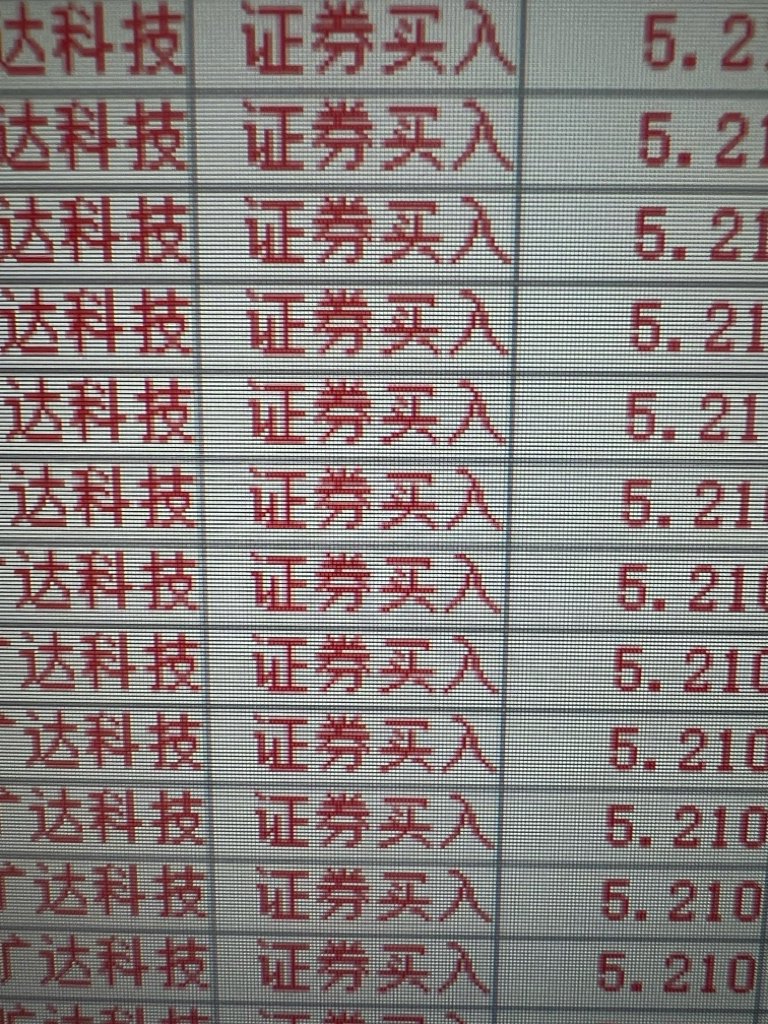 达科技 证券买入 5.2
达科技 证券买入 5.21
达科技 证券买入 5.21
达科技 证券买入 5.21
达科技 证券买入 5.21
达科技 证券买入 5.210
达科技 证券买入 5.210
达科技 证券买入 5.210
达科技 证券买入 5.210
达科技 证券买入 5.210
达科技 证券买入 5.210
达科技 证券买入 5.210